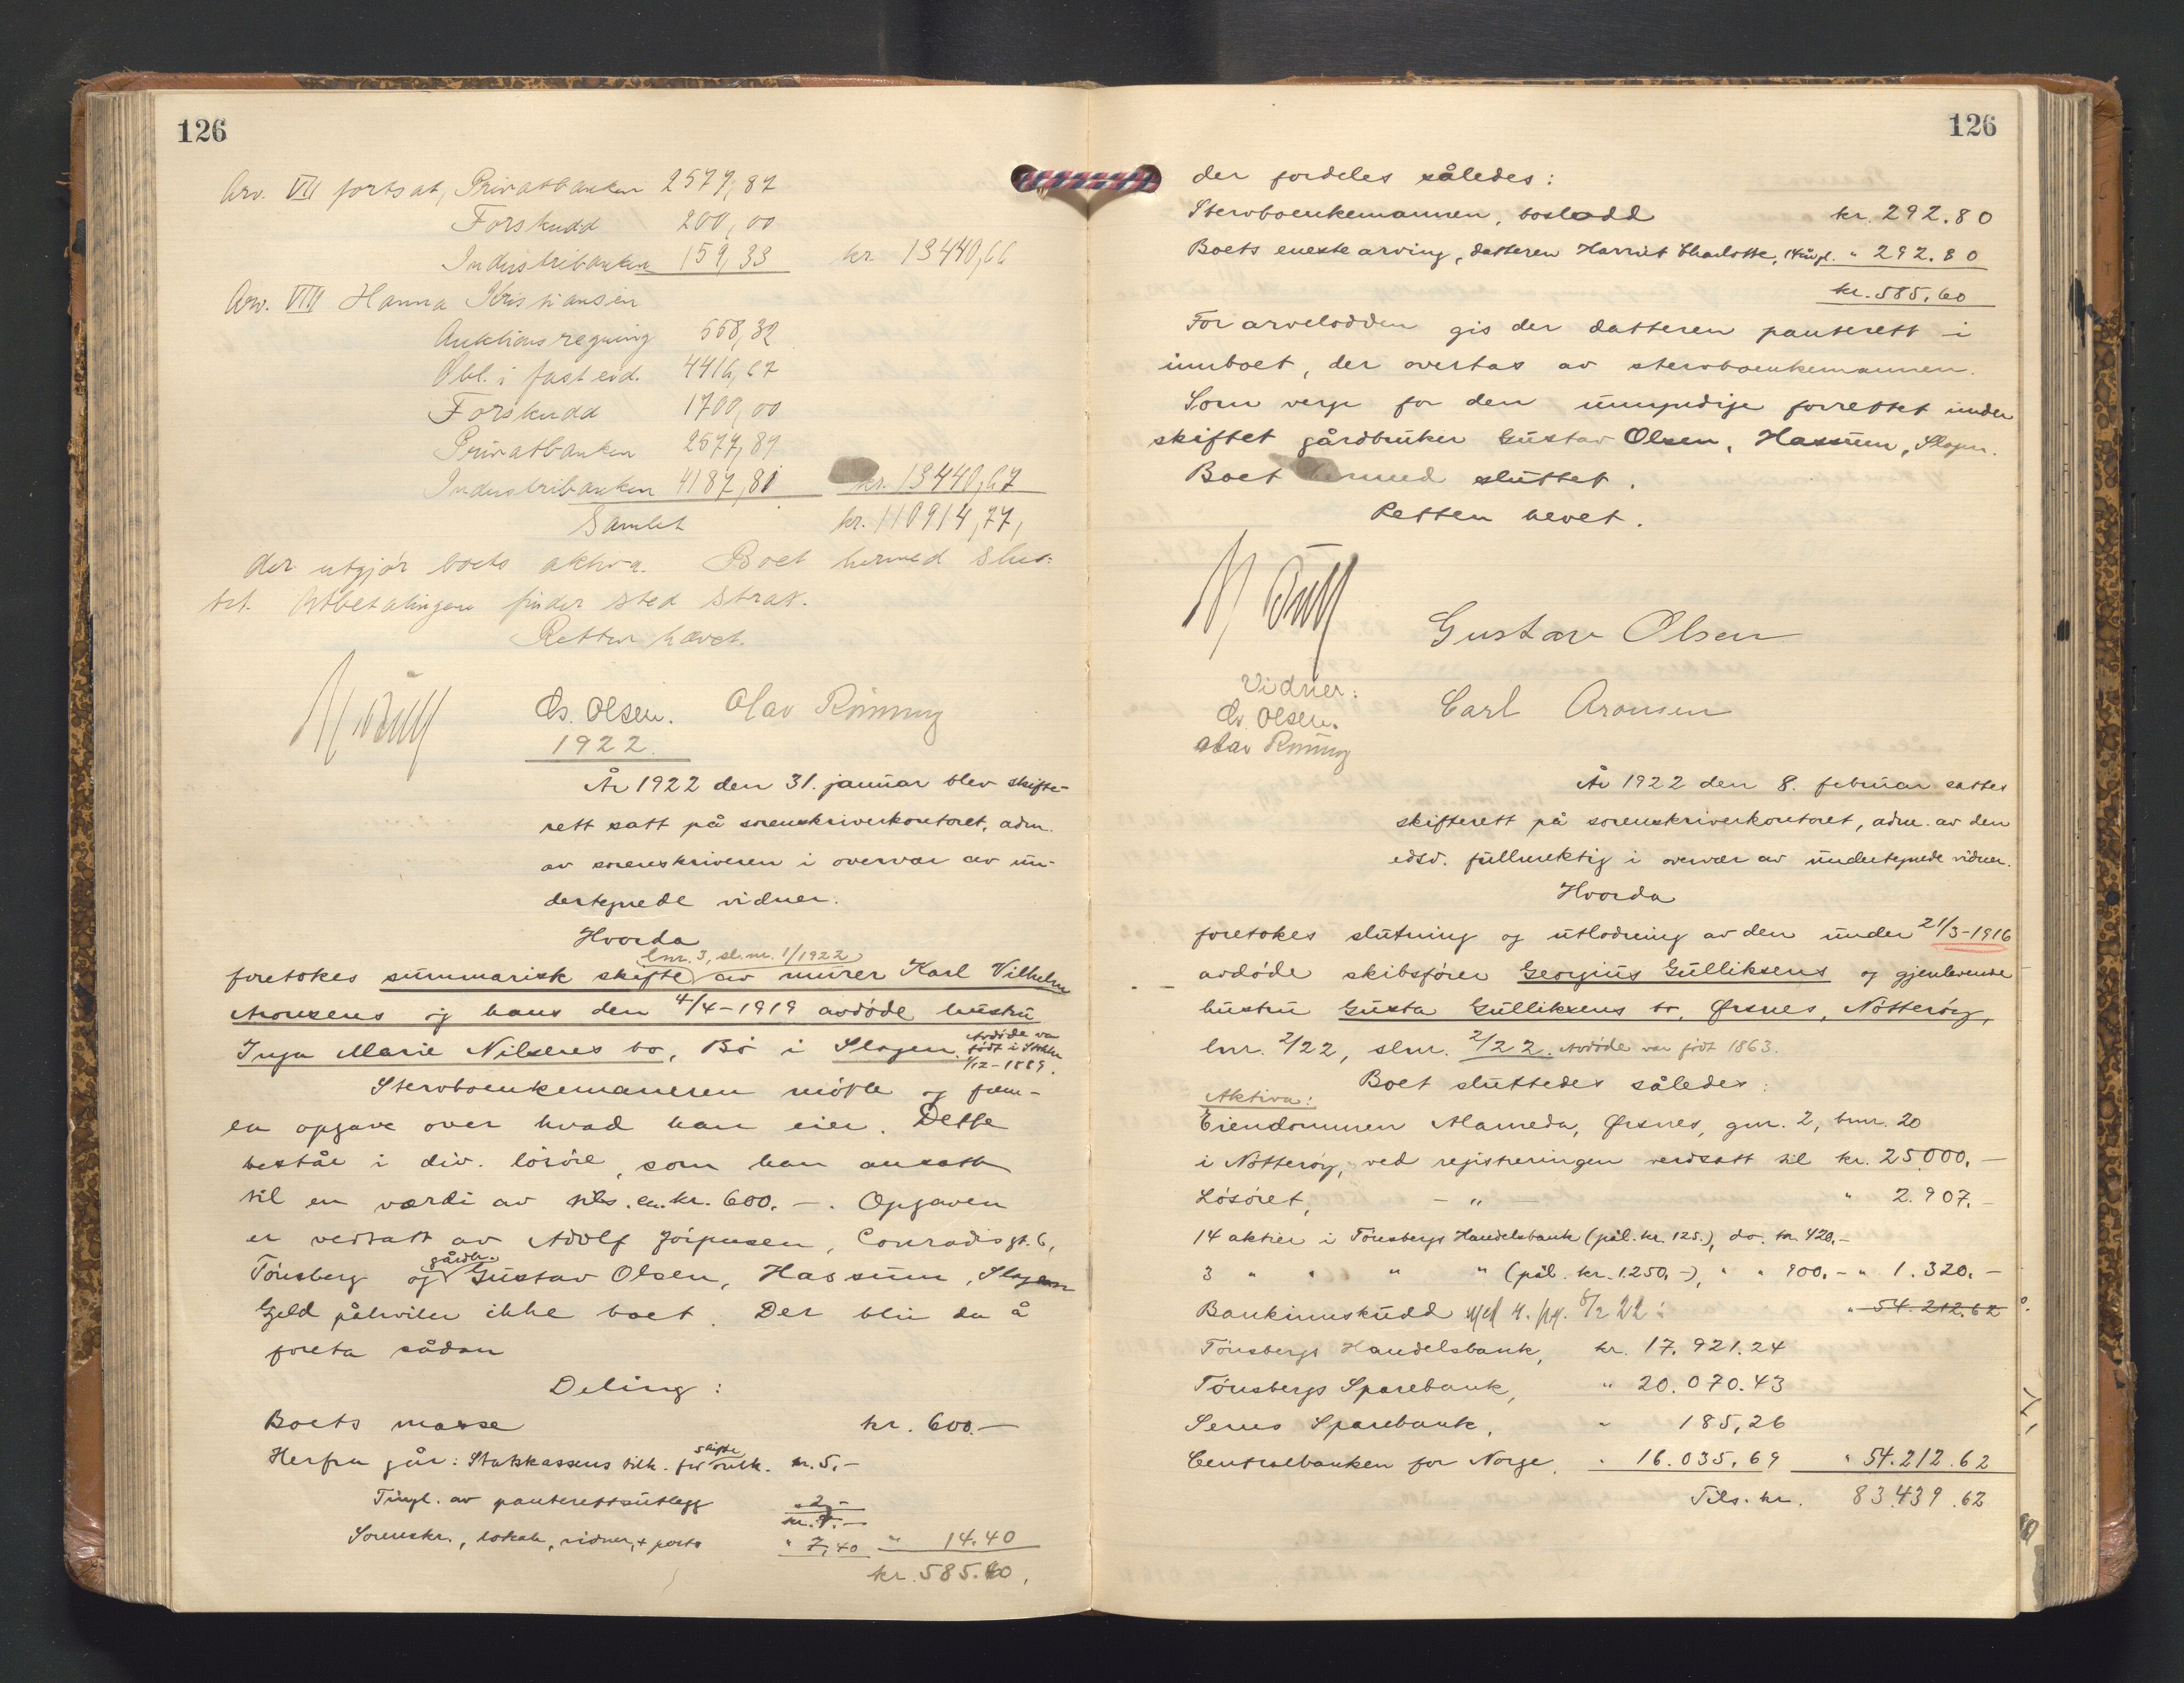 126
Arv. VII fortsat, Privatbanken 2579,87
Forskudd 200,00
Industribanken 159,33 kr. 13440,66
Arv. VIII Hanna Kristiansen
Auktionsregning 558,32
Obl. i fast eid. 4416,67
Forskudd 1700,00
Privatbanken 2577,87
Industribanken 4187,81 kr. 13440,67
Samlet kr. 110914,77,
der utgjør boets aktiva. Boet hermed slut-
tet. Utbetalingen finder sted strax.
Retten hævet.
Chr. Olsen. Olav Rönning
1922.
År 1922 den 31. januar blev skifte-
rett satt på sorenskriverkontoret, adm.
av sorenskriveren i overvær av un-
dertegnede vidner.
Hvorda
lnr. 3, sl.nr. 1/1922
foretokes summarisk skifte av murer Karl Vilhelm
Aronsens og hans den 4/4-1919 avdöde hustru
Inga Marie Nilsens bo, Bö i Slagen. Avdöde var
født i Stokke
1/12-1889.
Stervboenkemannen mötte og frem-
la opgave over hvad han eier. Dette
består i div. lösöre, som han ansatte
til en værdi av tils. ca. kr. 600.-. Opgaven
er vedtatt av Adolf Jörgensen, Conradis gt. 6,
Tönsberg og gårdbr. Gustav Olsen, Hassum, Slagen
Gjeld påhviler ikke boet. Der blir da å
foreta sådan
Deling:
Boets masse kr. 600.-
Herfra går: Statskassens tilk. for skifte kr. 5,-
Tingl. av panterettsutlegg " 2,-
kr. 7.-
Sorenskr., lokale, vidner, + porto " 7,40 " 14.40
kr. 585.60,
126
der fordeles således:
Stervboenkemannen, boslodd kr. 292.80
Boets eneste arving, datteren Harriet Charlotte, 14 år gl. " 292.80
kr. 585,60
For arvelodden gis der datteren panterett i
innboet, der overtas av stervboenkemannen.
Som verge for den umyndige forrettet under
skiftet gårdbruker Gustav Olsen, Hassum, Slagen.
Boet hermed sluttet.
Retten hevet.
Gustav Olsen
Vidner:
Chr. Olsen.
Olav Rönning
Carl Aronsen
År 1922 den 8. februar sattes
skifterett på sorenskriverkontoret, adm. av den
edsv. fullmektig i overvær av undertegnede vidner.
Hvorda
foretokes slutning og utlodning av den under 21/3-1916
avdöde skibsförer Georgius Gulliksens og gjenlevende
hustru Gusta Gulliksens bo, Ørsnes, Nötteröy,
lnr. 2/22, slnr. 2/22. Avdöde var födt 1863.
Boet sluttedes således:
Aktiva:
Eiendommen Alameda, Ørsnes, gnr. 2, bnr. 20
i Nötteröy, ved registreringen verdsatt til kr. 25000,-
Lösöret, - " - " 2.907.-
14 aktier i Tönsbergs Handelsbank (pål. kr. 125.), do. kr. 420,-
3 " " " " (pål. kr. 1250,-), " " 900.- " 1.320.-
Bankinnskudd " 54.212.62
Tönsbergs Handelsbank, kr. 17.921.24
Tönsbergs Sparebank, " 20.070.43
Sems Sparebank, " 185,26
Centralbanken for Norge, " 16.035,69 " 54.212.62
Tils. kr. 83.439.62